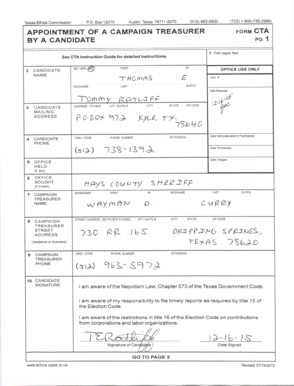 Texas Ethics Commission P.O. Box 12070 Austin, Texas 78711-2070 (512) 463-5800 (TDD 1-800-735-2989)
APPOINTMENT OF A CAMPAIGN TREASURER
BY A CANDIDATE
FORM CTA
PG 1
See CTA Instruction Guide for detailed instructions.
1 Total pages filed:
2 CANDIDATE NAME
MS / MRS / MR FIRST MI
THOMAS E
NICKNAME LAST SUFFIX
Tommy RATLIFF
OFFICE USE ONLY
Date Received
3 CANDIDATE MAILING ADDRESS
ADDRESS / PO BOX; APT / SUITE #; CITY; STATE; ZIP CODE
P.O BOX 972 KYLE, TX.
78640
4 CANDIDATE PHONE
AREA CODE PHONE NUMBER EXTENSION
(512) 738-1392
Date Hand-delivered or Postmarked
Date Processed
Date Imaged
5 OFFICE HELD
(if any)
6 OFFICE SOUGHT
(if known)
HAYS COUNTY SHERIFF
7 CAMPAIGN TREASURER NAME
MS/MRS/MR FIRST MI NICKNAME LAST SUFFIX
WAYMAN D. CURRY
8 CAMPAIGN TREASURER STREET ADDRESS
(residence or business)
STREET ADDRESS (NO PO BOX PLEASE); APT / SUITE #; CITY; STATE; ZIP CODE
730 RR 165 DRIPPING SPRINGS,
TEXAS 78620
9 CAMPAIGN TREASURER PHONE
AREA CODE PHONE NUMBER EXTENSION
(512) 963-5972
10 CANDIDATE SIGNATURE
I am aware of the Nepotism Law, Chapter 573 of the Texas Government Code.
I am aware of my responsibility to file timely reports as required by title 15 of
the Election Code.
I am aware of the restrictions in title 15 of the Election Code on contributions
from corporations and labor organizations.
12-16-15
Signature of Candidate Date Signed
GO TO PAGE 2
www.ethics.state.tx.us Revised 07/14/2010